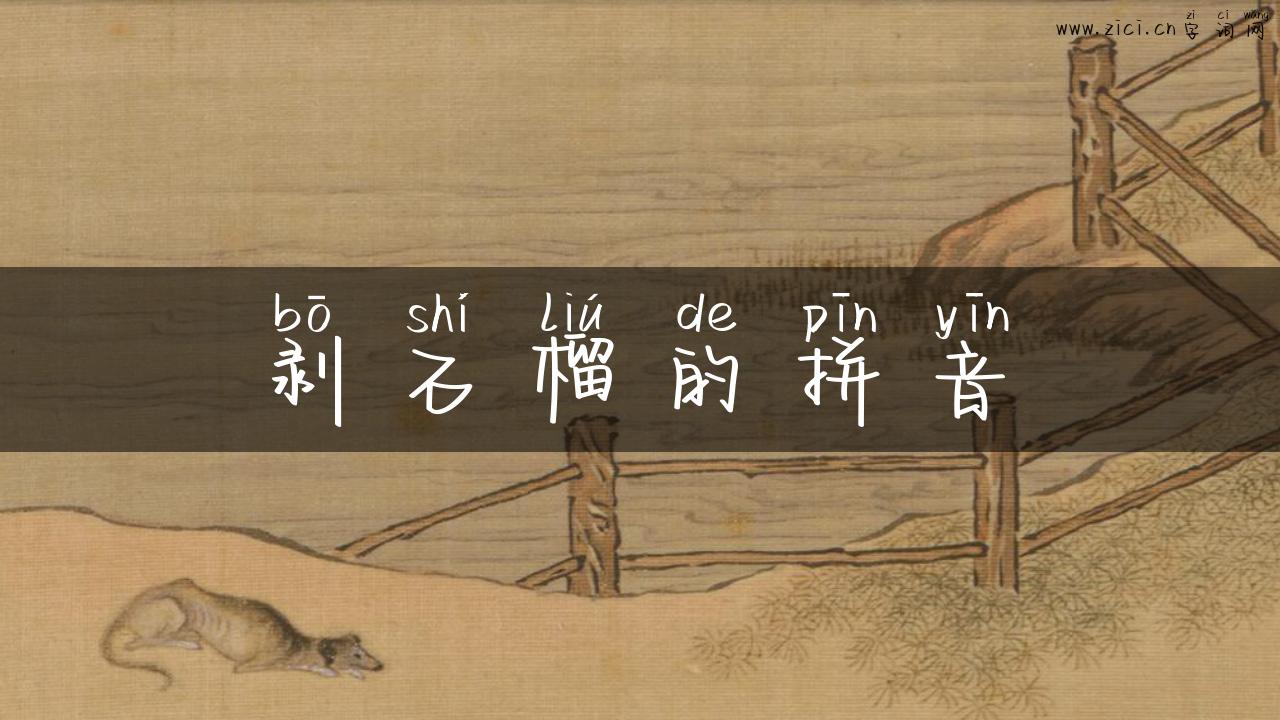 zi ci wang
www.zici.cn 字词网
bō shí liú de pīn yīn
剥石榴的拼音